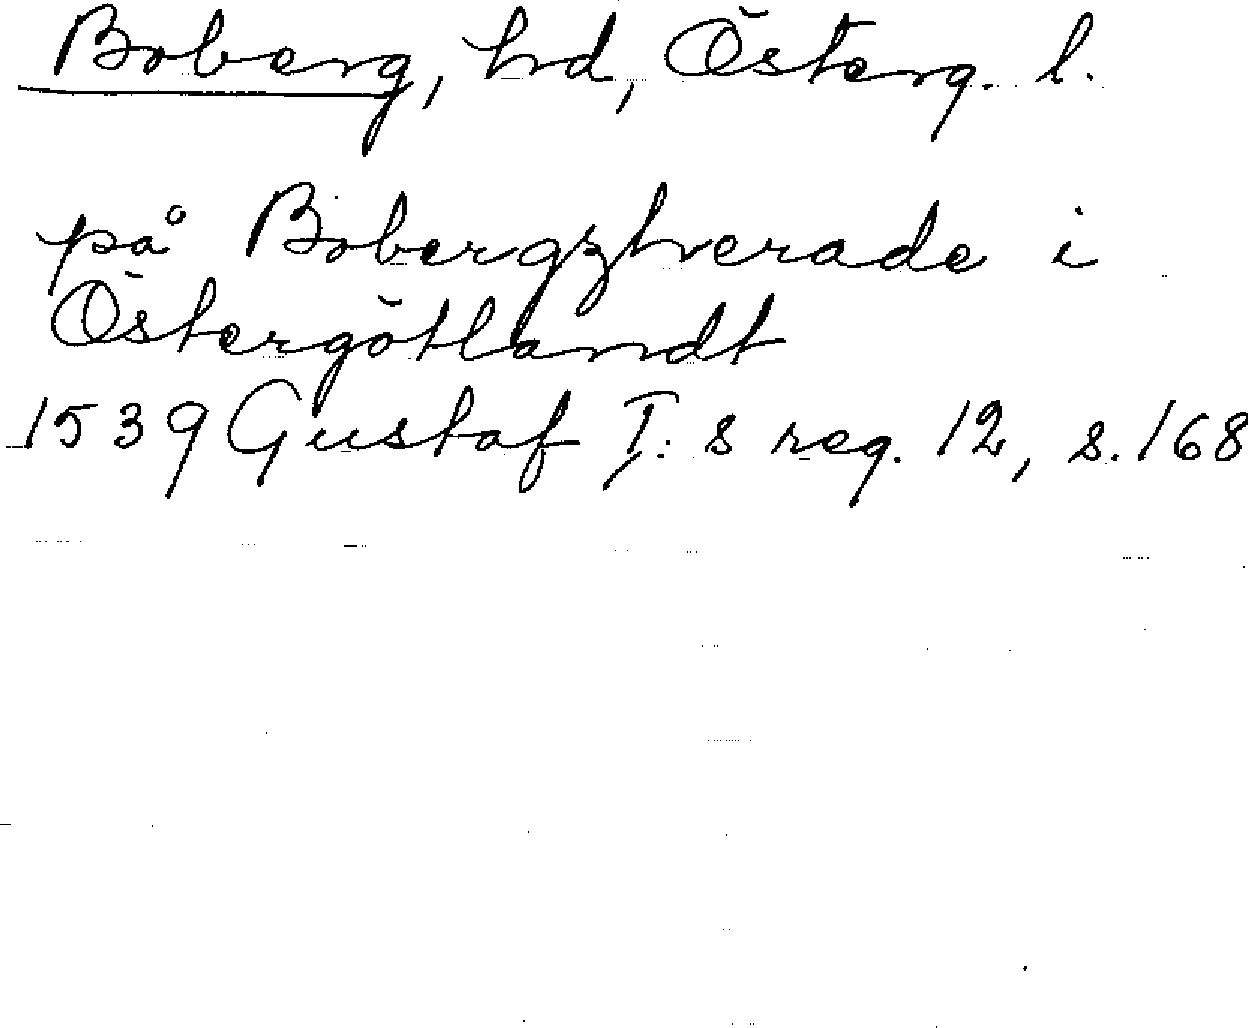 Boberg, hd, Österg. l.
på Bobergzhverade i
Östergötlandt
1539 Gustaf I: s reg. 12, s. 168